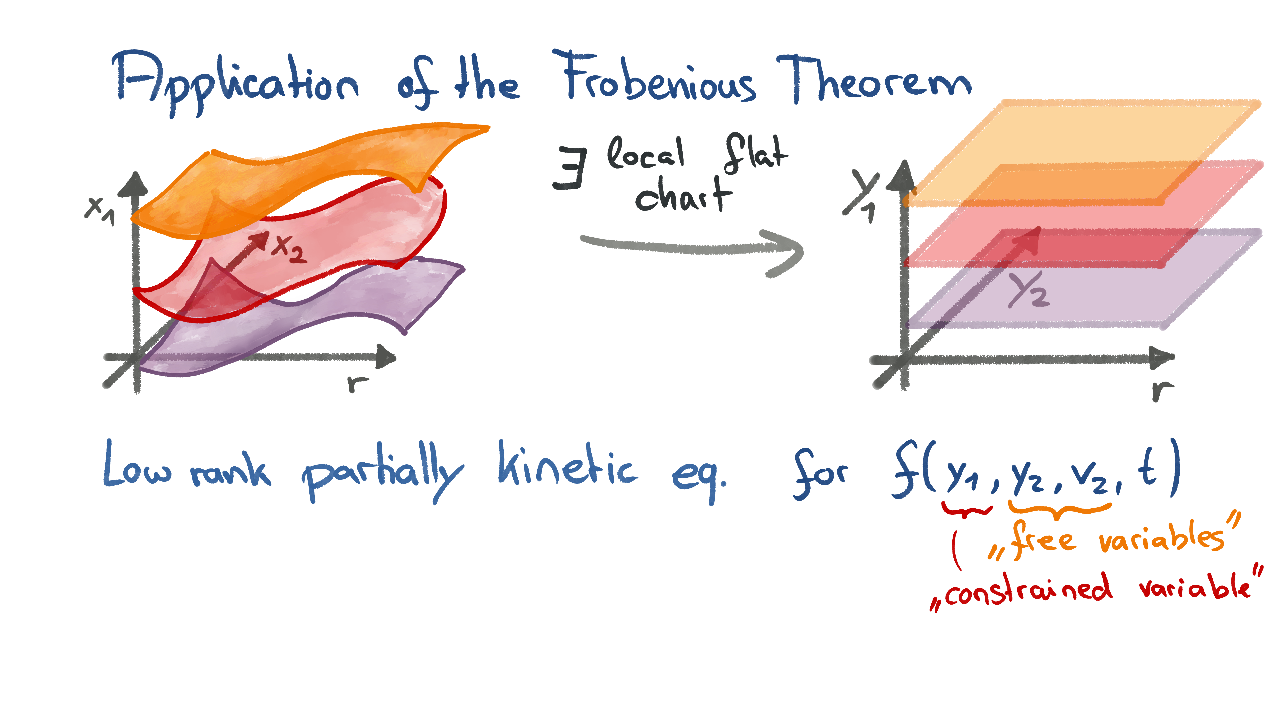 Application of the Frobenious Theorem
∃ local flat
chart
x₁
x₂
r
y₁
y₂
r
Low rank partially kinetic eq. for f(y₁, y₂, v₂, t)
„free variables”
„constrained variable”